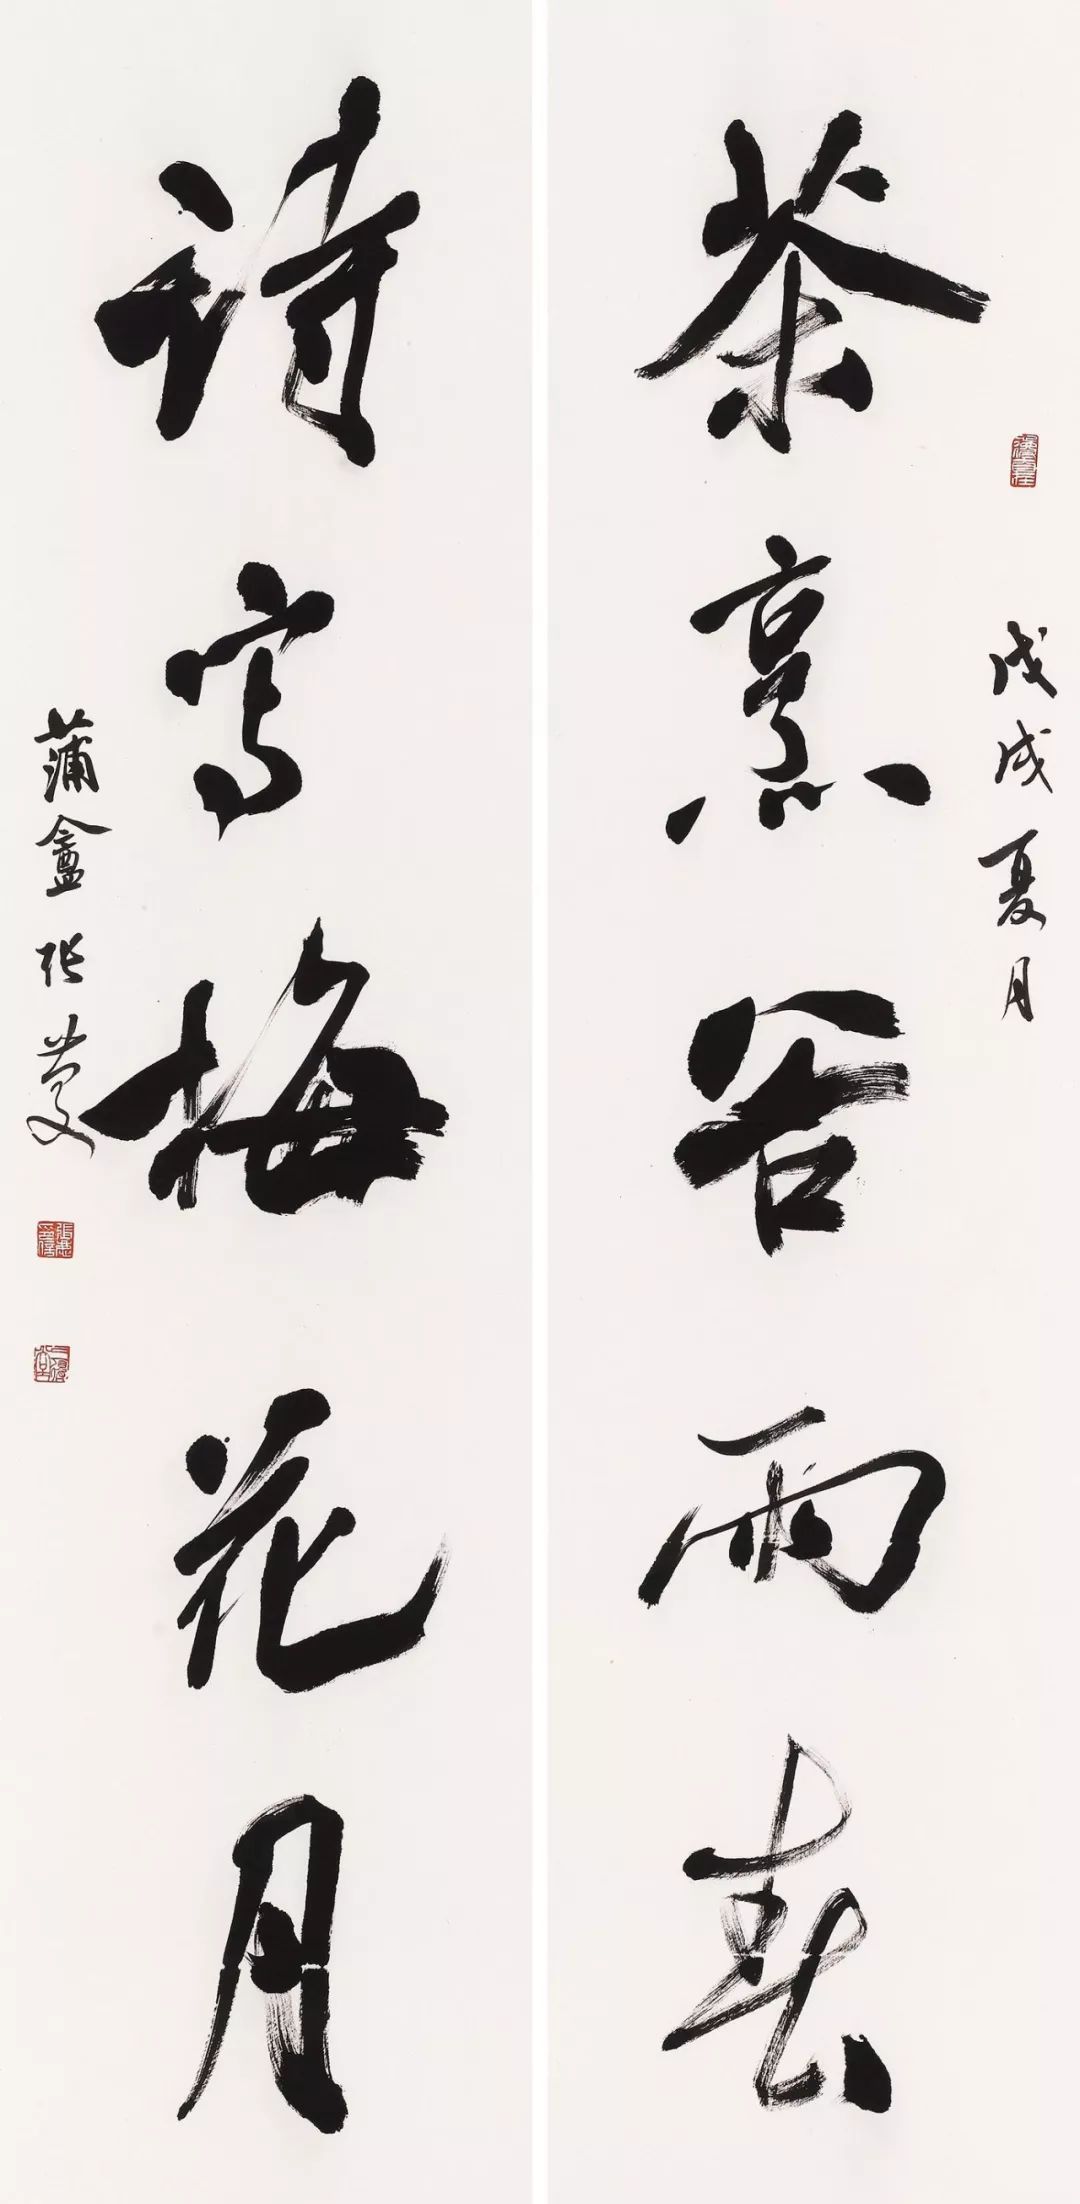 茶烹谷雨春
戊戌夏月
诗写梅花月
蒲盦张庆